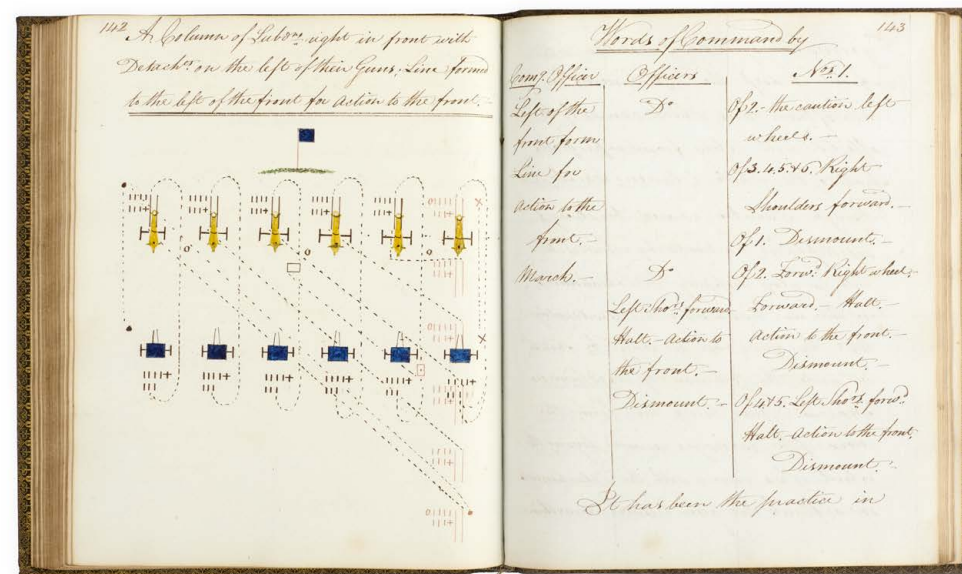 142
A Column of Subdns. right in front with
Detachts. on the left of their Guns; Line formed
to the left of the front for Action to the front.—
143
Words of Command by
Comg. Officer
Officers
Nos. 1.
Left of the
front form
Line for
Action to the
front.—
March.—
Do
Do
Left Shors. forward
Halt.—Action to
the front.—
Dismount.—
Of 2.—the caution left
wheels.—
Of 3. 4. 5. & 6. Right
Shoulders forward.—
Of 1. Dismount.—
Of 2. Forwd. Right wheel
Forward.—Halt.—
Action to the front.—
Dismount.—
Of 4 & 5. Left Shors. forwd.
Halt.—Action to the front.
Dismount.—
It has been the practice in